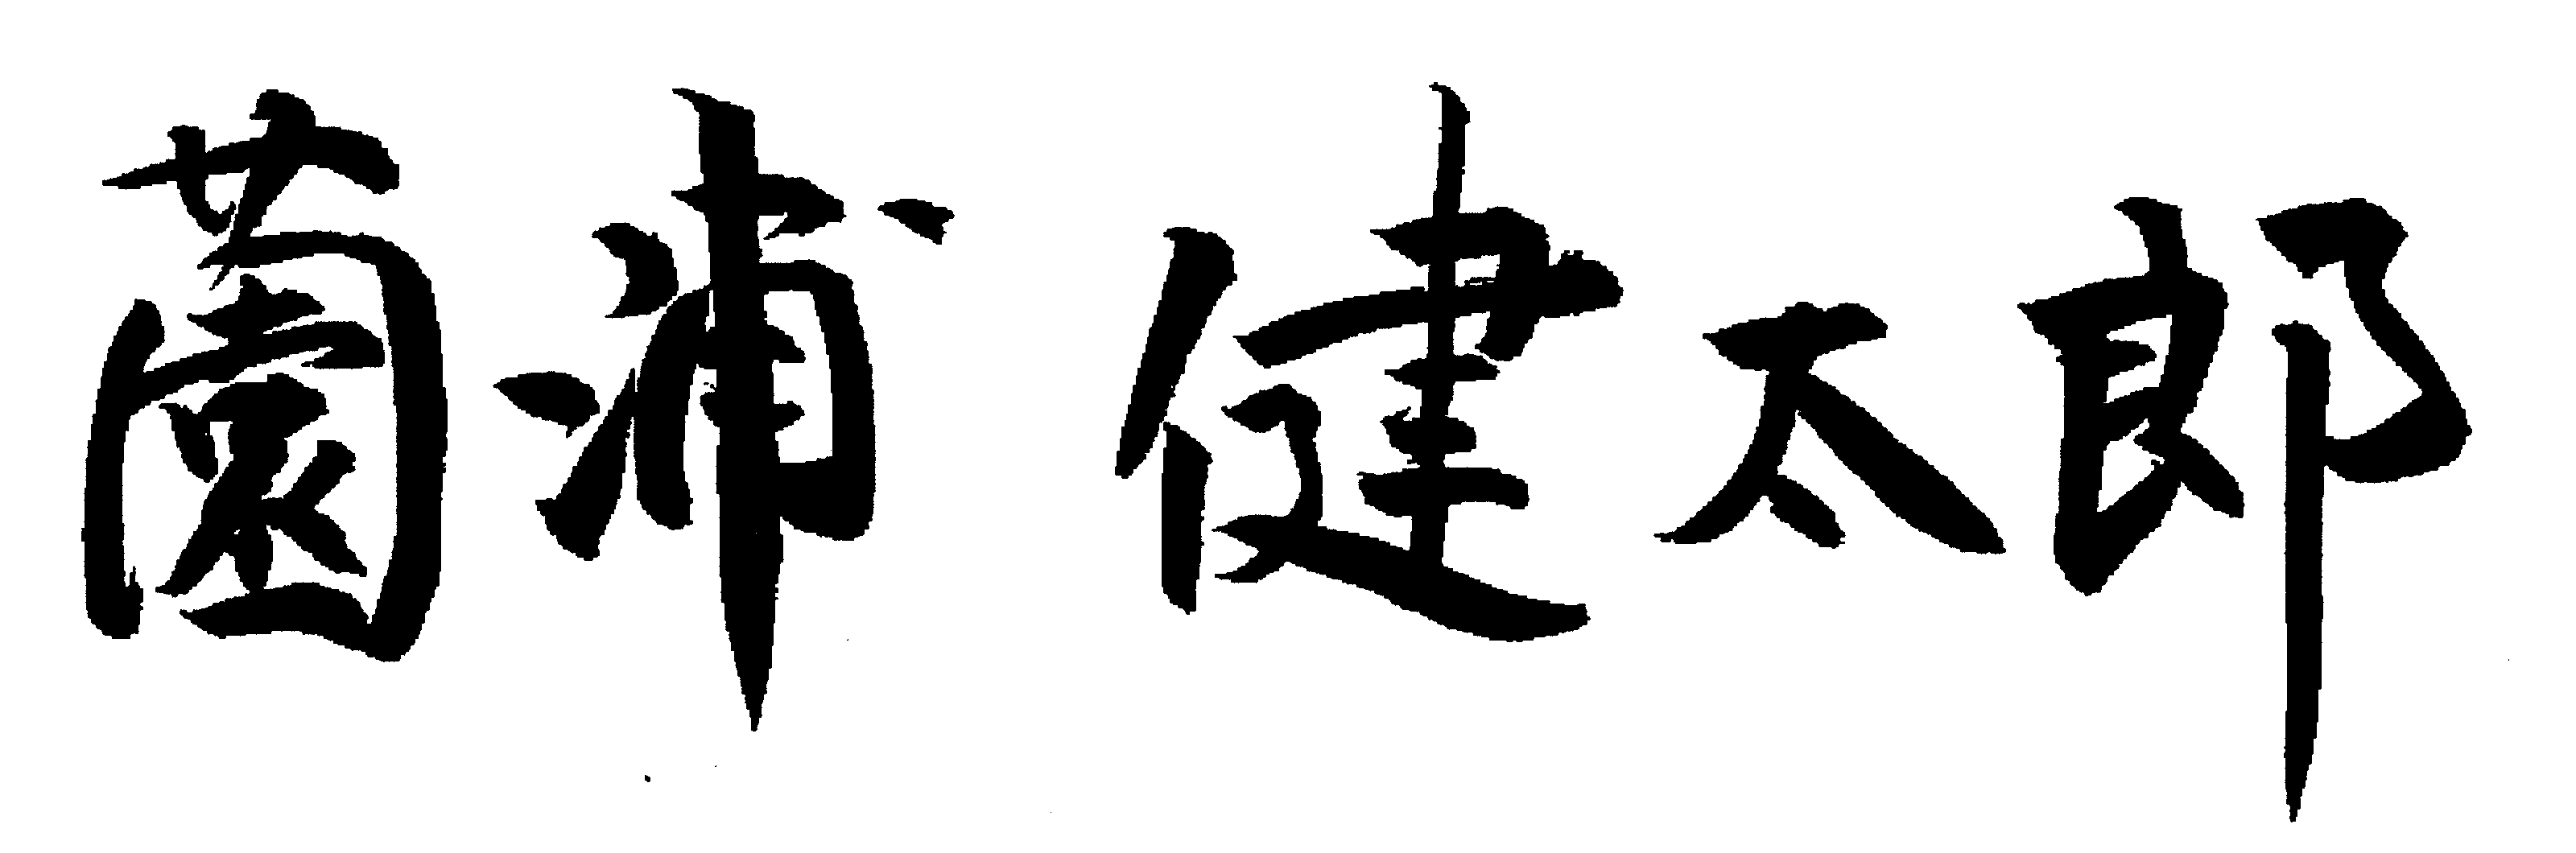 薗浦 健太郎